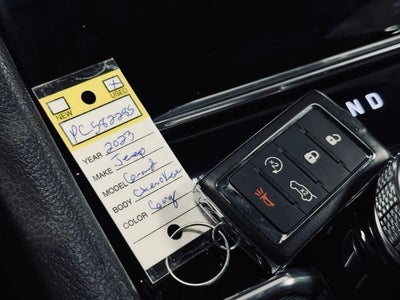 NEW
USED
PC 562285
YEAR 2023
MAKE Jeep
MODEL Grand
BODY Cherokee
COLOR Gray
x2
x2
N D